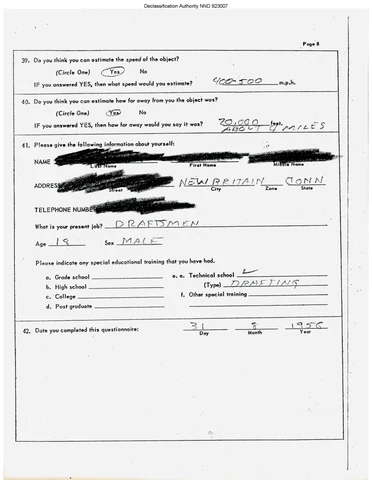 Declassification Authority NND 923007
Page 8
39. Do you think you can estimate the speed of the object?
(Circle One) Yes No
IF you answered YES, then what speed would you estimate? 400-500 m.p.h.
40. Do you think you can estimate how far away from you the object was?
(Circle One) Yes No
IF you answered YES, then how far away would you say it was? 20,000 feet.
ABOUT 4 MILES
41. Please give the following information about yourself:
NAME
Last Name First Name Middle Name
ADDRESS NEW BRITAIN CONN
Street City Zone State
TELEPHONE NUMBER
What is your present job? DRAFTSMEN
Age 18 Sex MALE
Please indicate any special educational training that you have had.
a. Grade school e. e. Technical school ✓
b. High school (Type) DRAFTING
c. College f. Other special training
d. Post graduate
42. Date you completed this questionnaire: 31 8 1956
Day Month Year